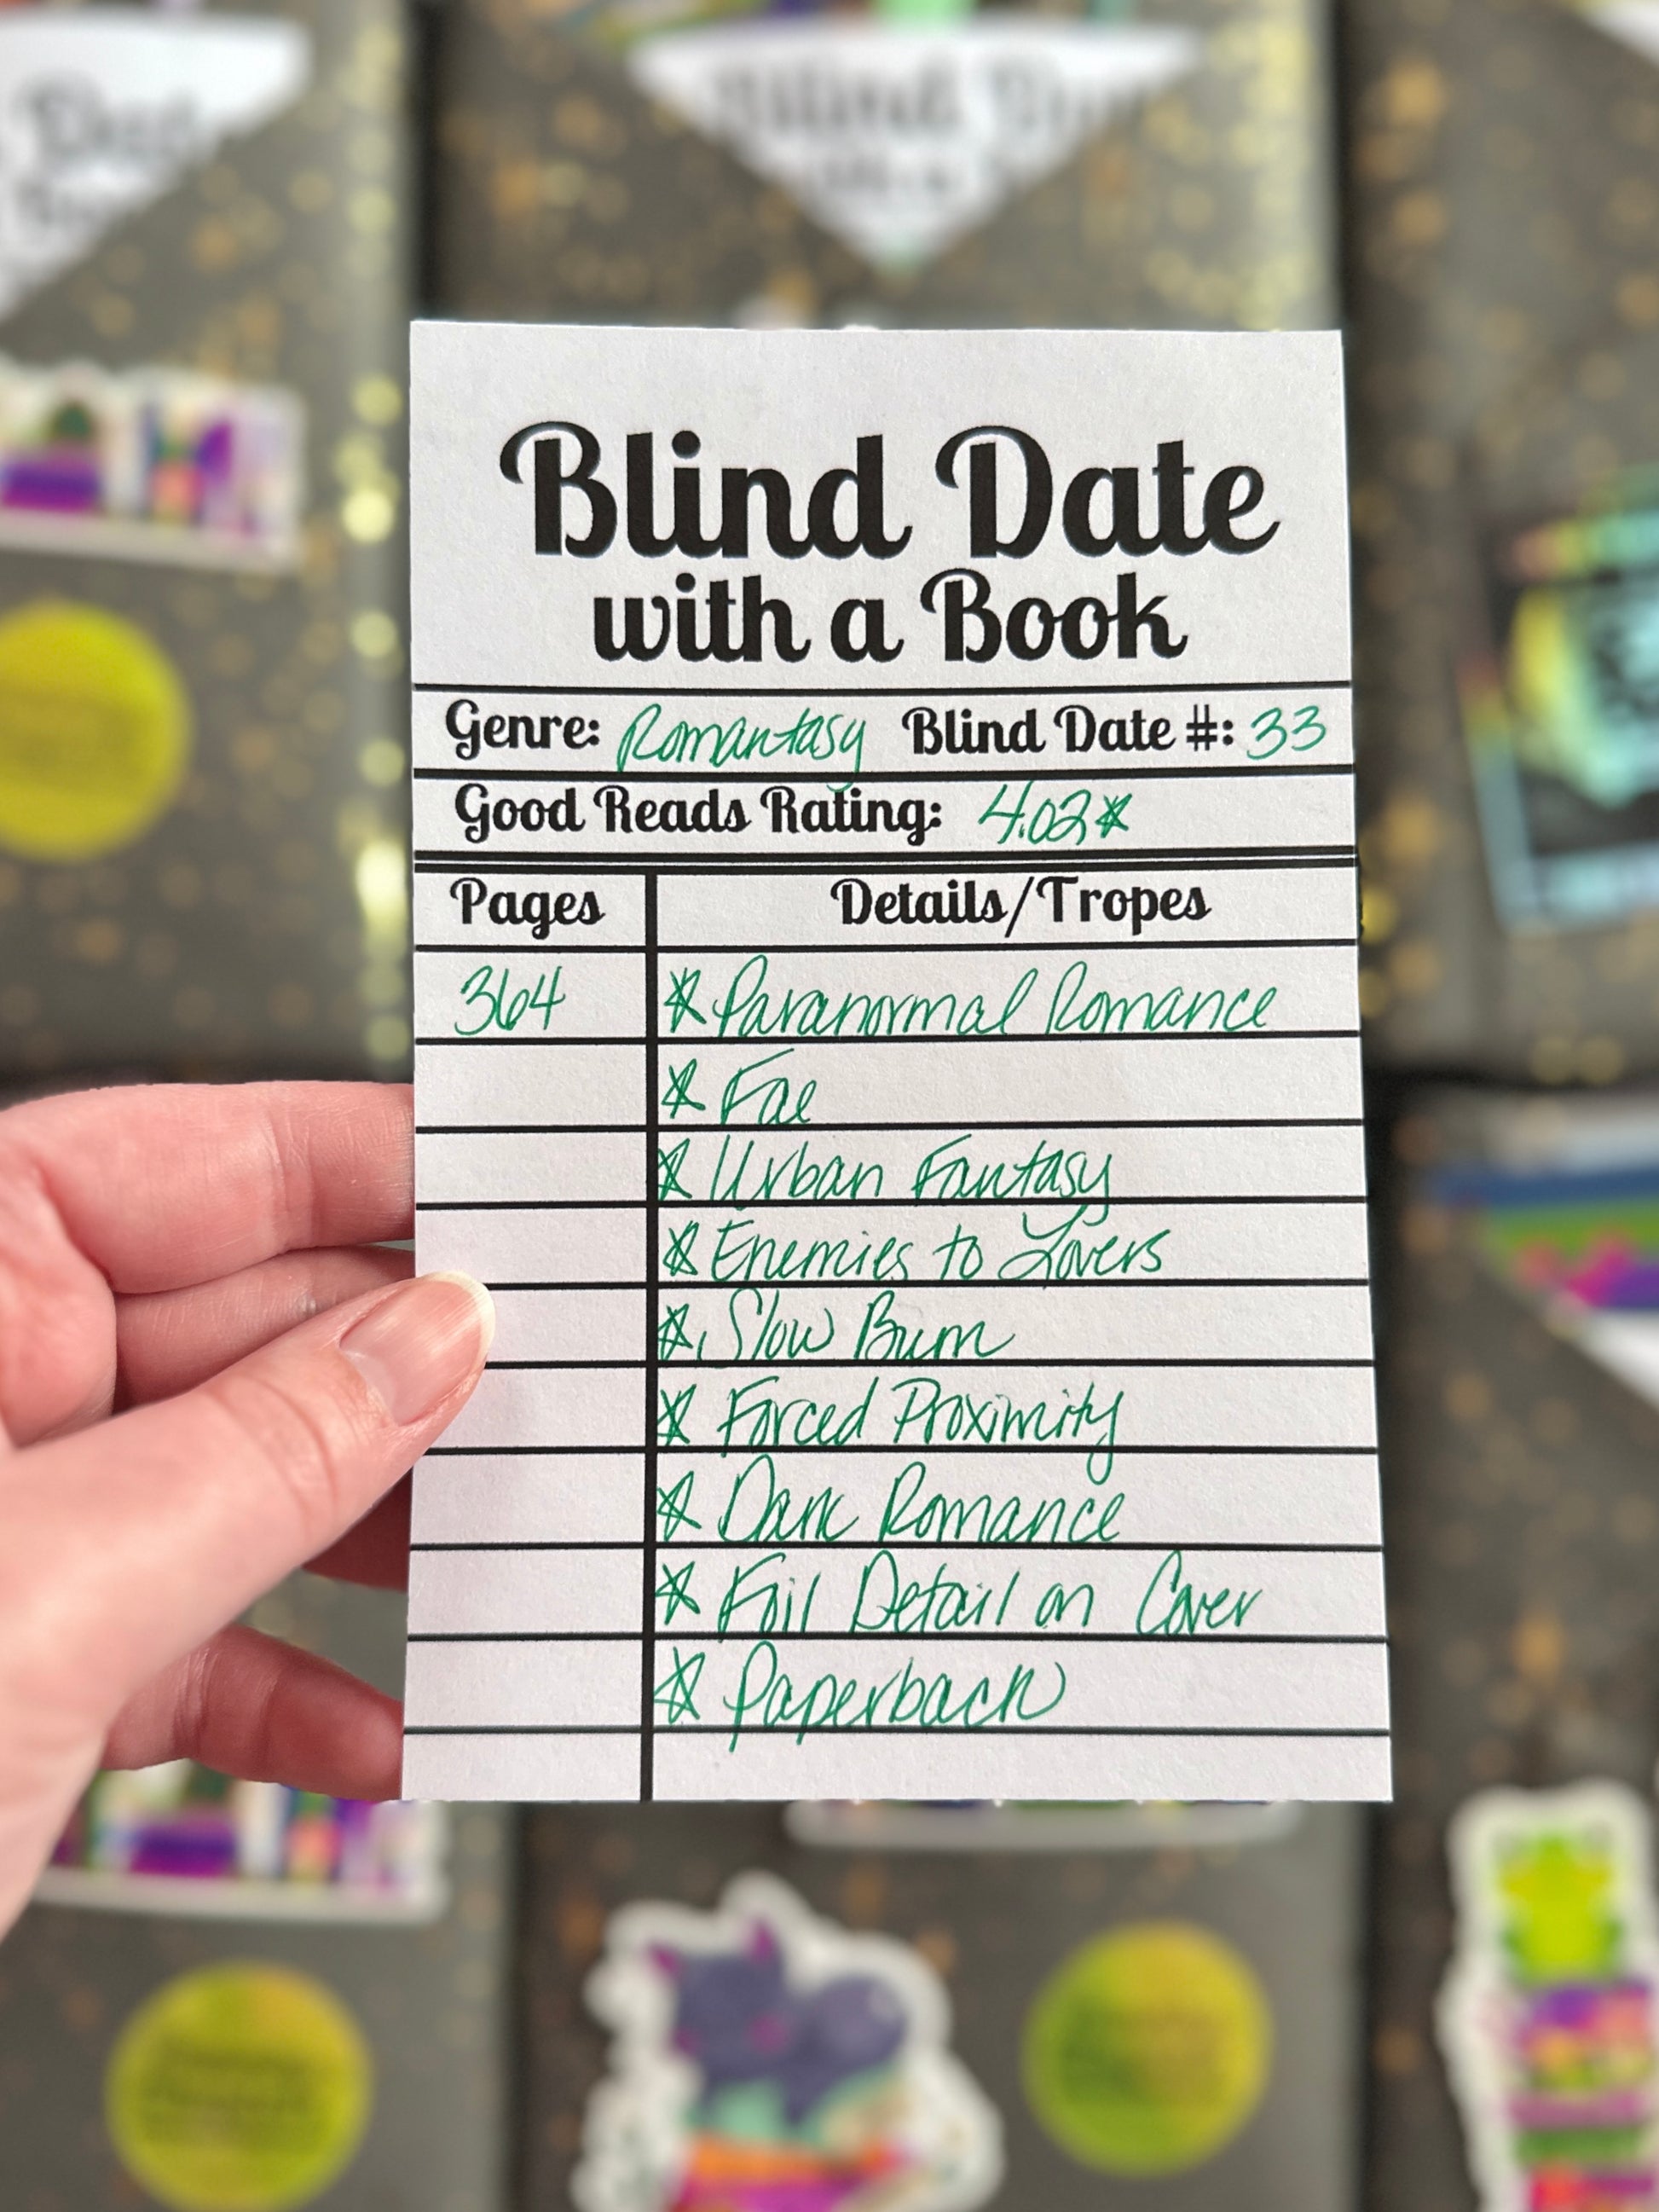 Blind Date
with a Book
Genre: Romantasy Blind Date #: 33
Good Reads Rating: 4.02☆
Pages Details/Tropes
364 ☆ Paranormal Romance
☆ Fae
☆ Urban Fantasy
☆ Enemies to Lovers
☆ Slow Burn
☆ Forced Proximity
☆ Dark Romance
☆ Foil Detail on Cover
☆ Paperback